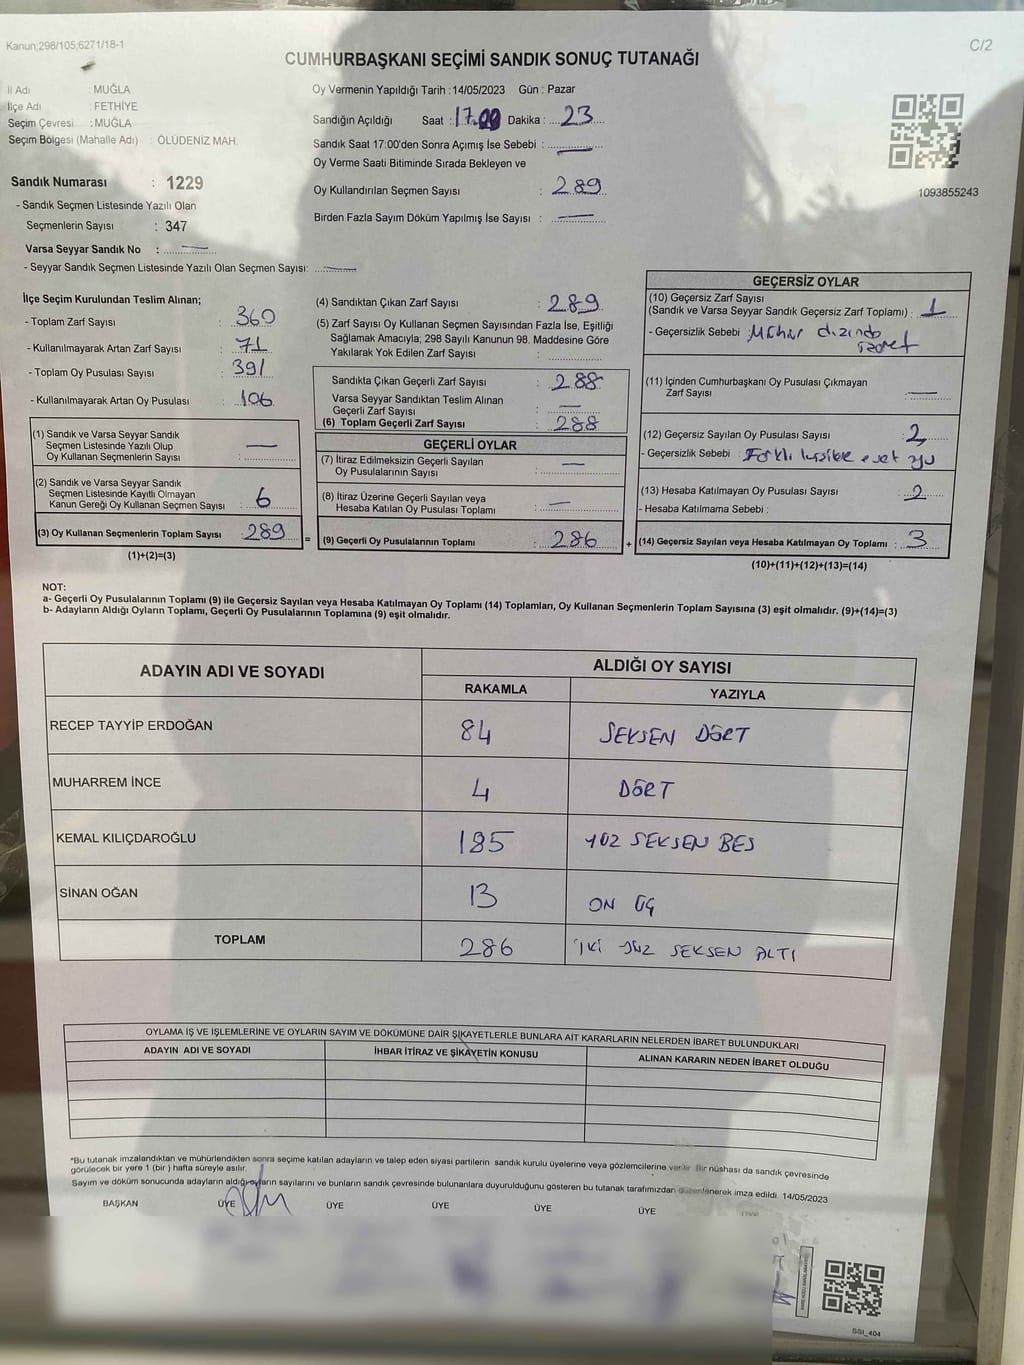 Kanun;298/105;6271/18-1
C/2
CUMHURBAŞKANI SEÇİMİ SANDIK SONUÇ TUTANAĞI
İl Adı : MUĞLA
İlçe Adı : FETHİYE
Seçim Çevresi : MUĞLA
Seçim Bölgesi (Mahalle Adı) : ÖLÜDENİZ MAH.
Sandık Numarası : 1229
- Sandık Seçmen Listesinde Yazılı Olan
Seçmenlerin Sayısı : 347
Varsa Seyyar Sandık No :
- Seyyar Sandık Seçmen Listesinde Yazılı Olan Seçmen Sayısı:
Oy Vermenin Yapıldığı Tarih :14/05/2023 Gün : Pazar
Sandığın Açıldığı Saat : 17.00 Dakika : 23
Sandık Saat 17:00'den Sonra Açımış İse Sebebi :
Oy Verme Saati Bitiminde Sırada Bekleyen ve
Oy Kullandırılan Seçmen Sayısı : 289
Birden Fazla Sayım Döküm Yapılmış İse Sayısı :
1093855243
İlçe Seçim Kurulundan Teslim Alınan;
- Toplam Zarf Sayısı : 360
- Kullanılmayarak Artan Zarf Sayısı : 71
- Toplam Oy Pusulası Sayısı : 391
- Kullanılmayarak Artan Oy Pusulası : 106
(1) Sandık ve Varsa Seyyar Sandık
Seçmen Listesinde Yazılı Olup
Oy Kullanan Seçmenlerin Sayısı :
(2) Sandık ve Varsa Seyyar Sandık
Seçmen Listesinde Kayıtlı Olmayan
Kanun Gereği Oy Kullanan Seçmen Sayısı : 6
(3) Oy Kullanan Seçmenlerin Toplam Sayısı : 289
(1)+(2)=(3)
=
(4) Sandıktan Çıkan Zarf Sayısı : 289
(5) Zarf Sayısı Oy Kullanan Seçmen Sayısından Fazla İse, Eşitliği
Sağlamak Amacıyla; 298 Sayılı Kanunun 98. Maddesine Göre
Yakılarak Yok Edilen Zarf Sayısı :
Sandıkta Çıkan Geçerli Zarf Sayısı : 288
Varsa Seyyar Sandıktan Teslim Alınan
Geçerli Zarf Sayısı :
(6) Toplam Geçerli Zarf Sayısı : 288
GEÇERLİ OYLAR
(7) İtiraz Edilmeksizin Geçerli Sayılan
Oy Pusulalarının Sayısı :
(8) İtiraz Üzerine Geçerli Sayılan veya
Hesaba Katılan Oy Pusulası Toplamı :
(9) Geçerli Oy Pusulalarının Toplamı : 286
+
GEÇERSİZ OYLAR
(10) Geçersiz Zarf Sayısı
(Sandık ve Varsa Seyyar Sandık Geçersiz Zarf Toplamı) : 1
- Geçersizlik Sebebi : Mühür dizinda
işaret
(11) İçinden Cumhurbaşkanı Oy Pusulası Çıkmayan
Zarf Sayısı :
(12) Geçersiz Sayılan Oy Pusulası Sayısı : 2
- Geçersizlik Sebebi : Farklı evet oyu
(13) Hesaba Katılmayan Oy Pusulası Sayısı : 2
- Hesaba Katılmama Sebebi :
(14) Geçersiz Sayılan veya Hesaba Katılmayan Oy Toplamı : 3
(10)+(11)+(12)+(13)=(14)
NOT:
a- Geçerli Oy Pusulalarının Toplamı (9) ile Geçersiz Sayılan veya Hesaba Katılmayan Oy Toplamı (14) Toplamları, Oy Kullanan Seçmenlerin Toplam Sayısına (3) eşit olmalıdır. (9)+(14)=(3)
b- Adayların Aldığı Oyların Toplamı, Geçerli Oy Pusulalarının Toplamına (9) eşit olmalıdır.
ADAYIN ADI VE SOYADI
ALDIĞI OY SAYISI
RAKAMLA
YAZIYLA
RECEP TAYYİP ERDOĞAN 84 SEKSEN DÖRT
MUHARREM İNCE 4 DÖRT
KEMAL KILIÇDAROĞLU 185 YÜZ SEKSEN BEŞ
SİNAN OĞAN 13 ON ÜÇ
TOPLAM 286 İKİ YÜZ SEKSEN ALTI
OYLAMA İŞ VE İŞLEMLERİNE VE OYLARIN SAYIM VE DÖKÜMÜNE DAİR ŞİKAYETLERLE BUNLARA AİT KARARLARIN NELERDEN İBARET BULUNDUKLARI
ADAYIN ADI VE SOYADI
İHBAR İTİRAZ VE ŞİKAYETİN KONUSU
ALINAN KARARIN NEDEN İBARET OLDUĞU
*Bu tutanak imzalandıktan ve mühürlendikten sonra seçime katılan adayların ve talep eden siyasi partilerin sandık kurulu üyelerine veya gözlemcilerine verilir. Bir nüshası da sandık çevresinde
görülecek bir yere 1 (bir ) hafta süreyle asılır.
Sayım ve döküm sonucunda adayların aldığı oyların sayılarını ve bunların sandık çevresinde bulunanlara duyurulduğunu gösteren bu tutanak tarafımızdan düzenlenerek imza edildi. 14/05/2023
BAŞKAN ÜYE ÜYE ÜYE ÜYE ÜYE
SSI_404